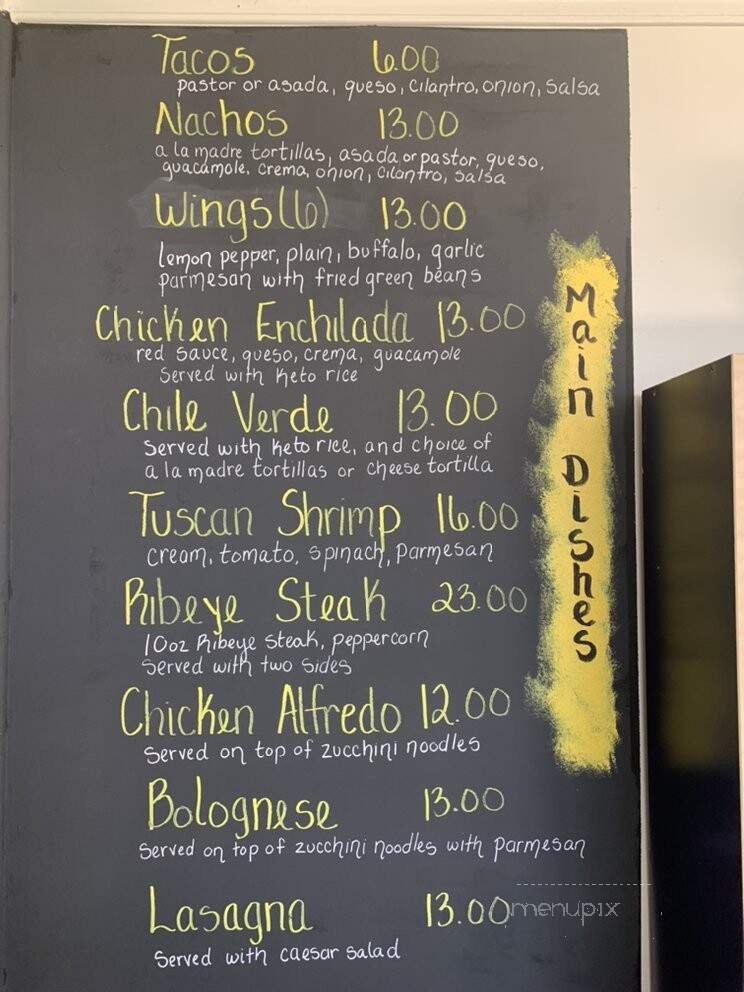 Tacos 6.00
pastor or asada, queso, cilantro, onion, salsa
Nachos 13.00
a la madre tortillas, asada or pastor, queso,
guacamole, crema, onion, cilantro, salsa
Wings(6) 13.00
lemon pepper, plain, buffalo, garlic
parmesan with fried green beans
Chicken Enchilada 13.00
red sauce, queso, crema, guacamole
Served with keto rice
Chile Verde 13.00
Served with keto rice, and choice of
a la madre tortillas or cheese tortilla
Tuscan Shrimp 16.00
cream, tomato, spinach, parmesan
Ribeye Steak 23.00
10oz Ribeye steak, peppercorn
Served with two sides
Chicken Alfredo 12.00
Served on top of zucchini noodles
Bolognese 13.00
Served on top of zucchini noodles with parmesan
Lasagna 13.00
Served with caesar salad
Main Dishes
menupix